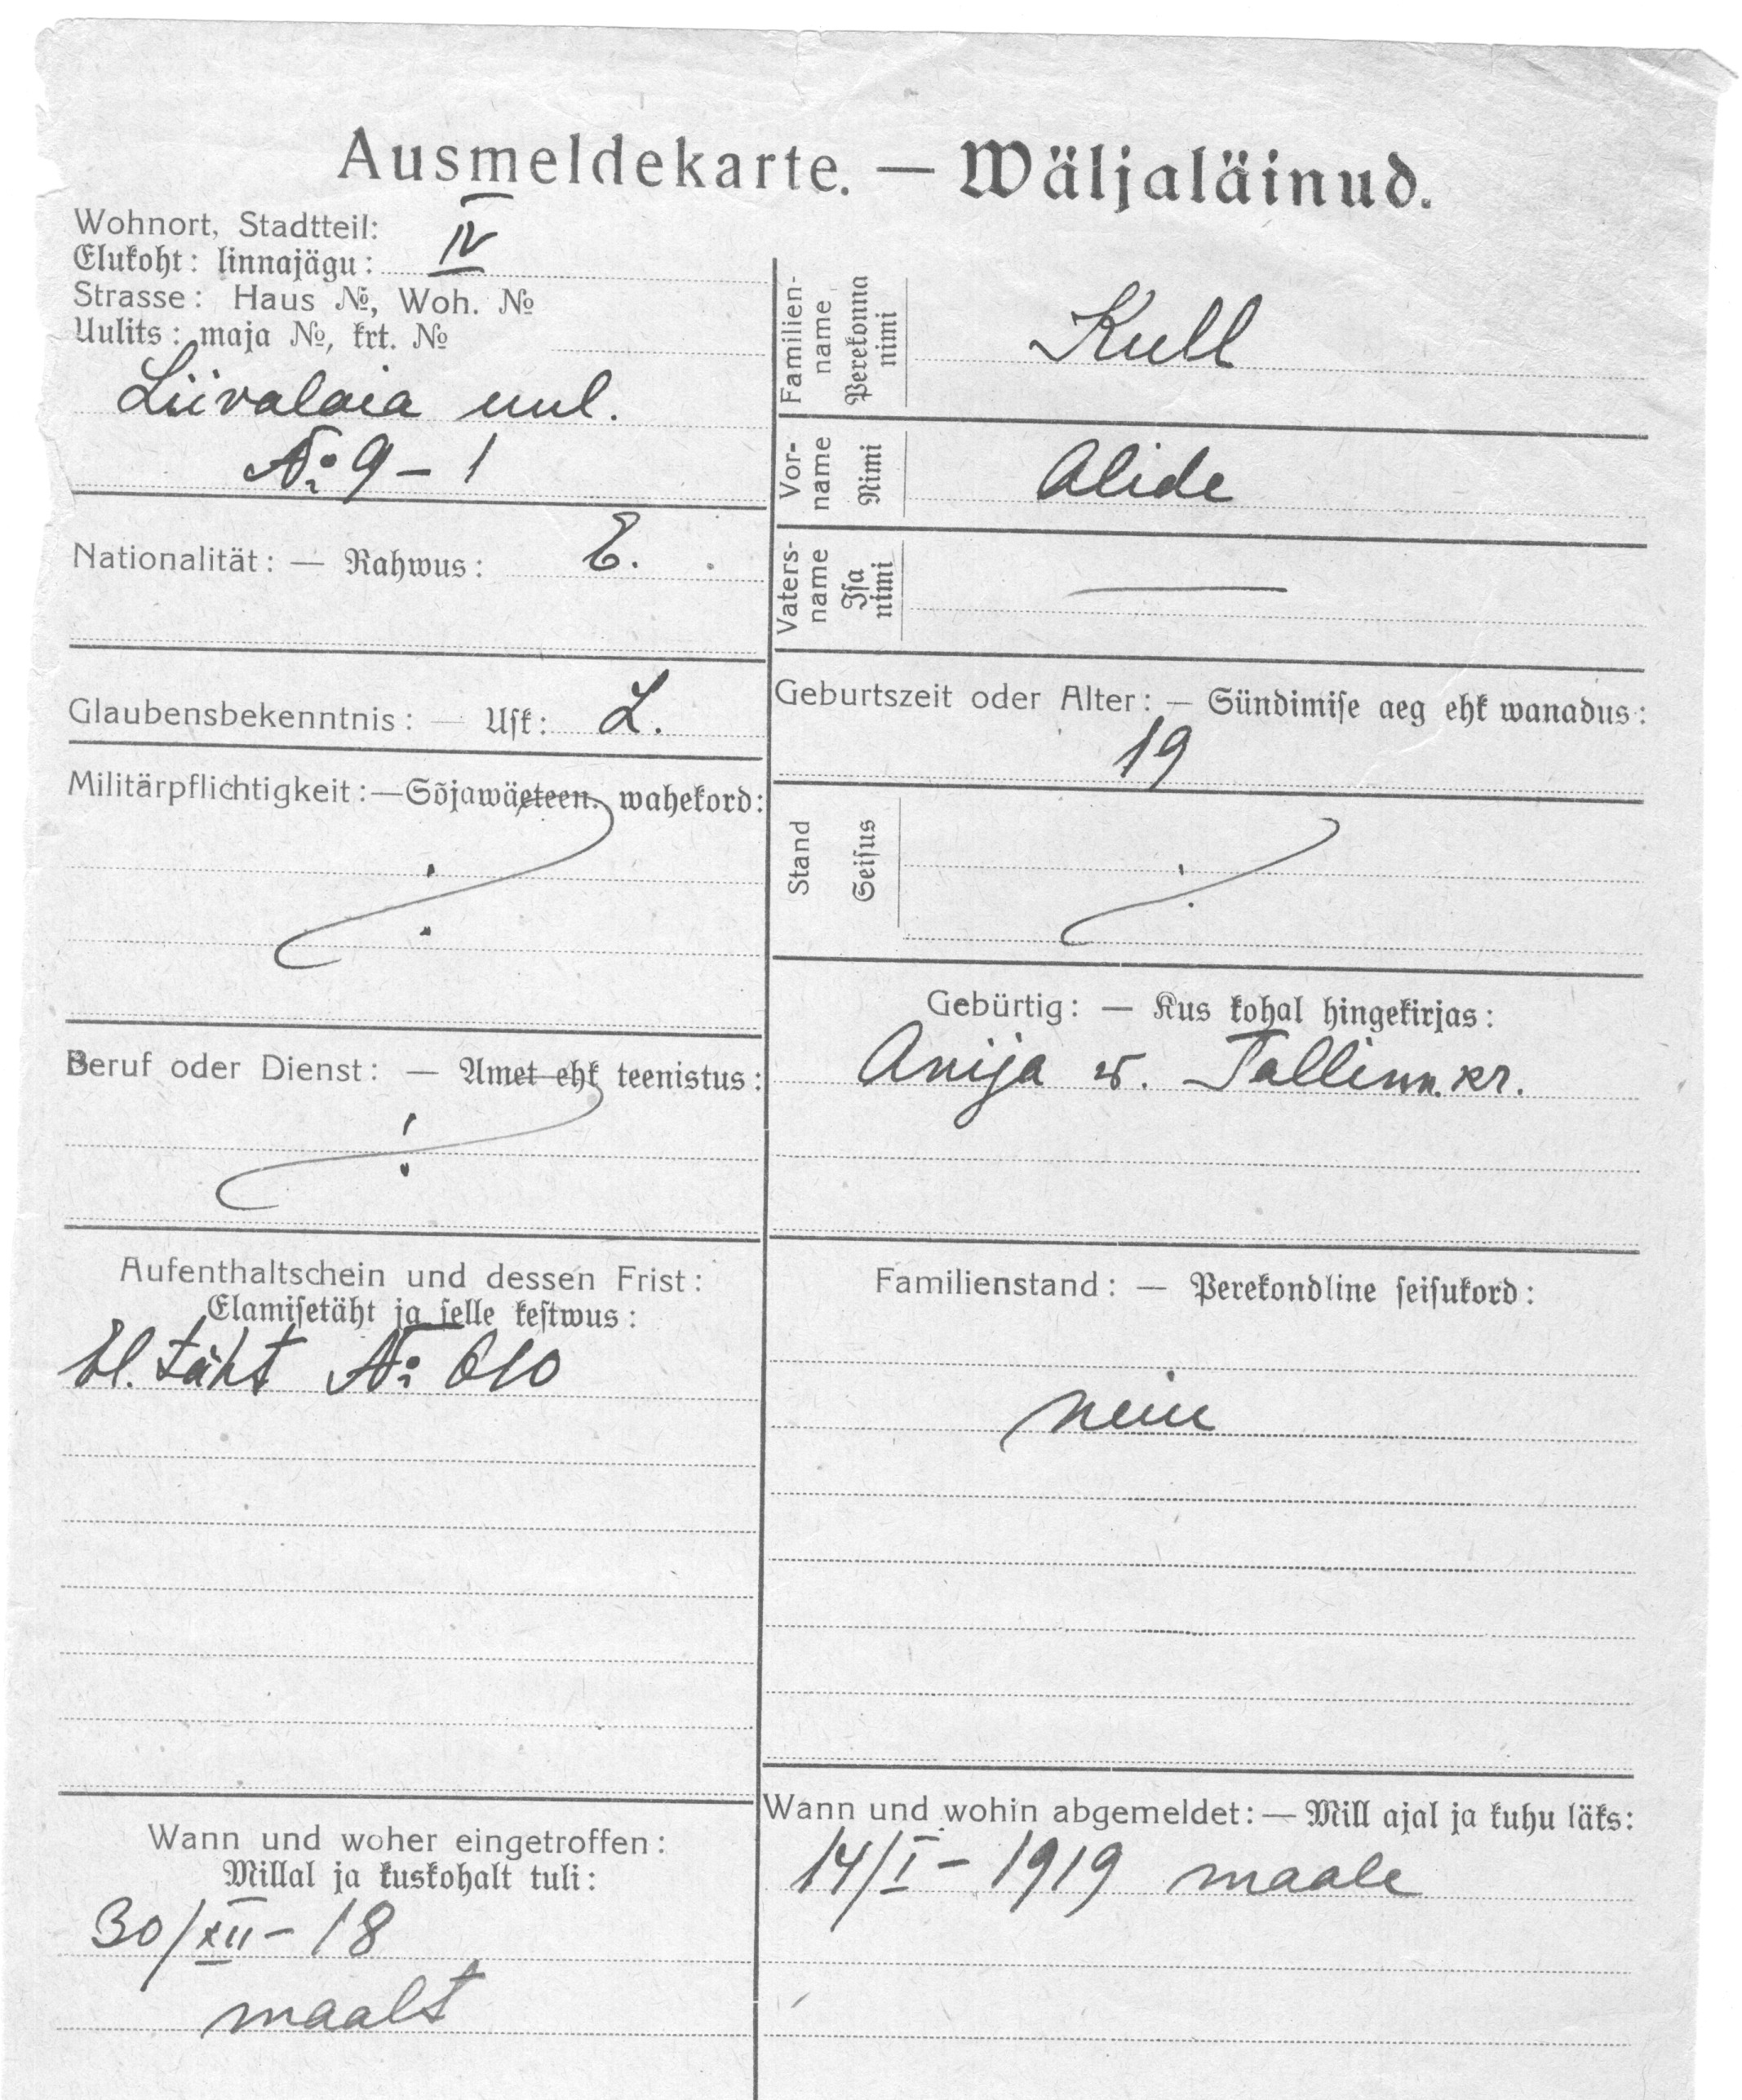 Ausmeldekarte. — Wäljaläinud.
Wohnort, Stadtteil:
Elukoht: linnajägu: IV
Strasse: Haus №, Woh. №
Uulits: maja №, krt. №
Liivalaia uul.
№ 9 – 1
Nationalität: — Rahwus: E.
Glaubensbekenntnis: — Usk: L.
Militärpflichtigkeit: — Sõjawäeteen. wahekord:
Beruf oder Dienst: — Amet ehk teenistus:
Aufenthaltschein und dessen Frist:
Elamisetäht ja selle kestwus:
El. täht № 610
Wann und woher eingetroffen:
Millal ja kuskohalt tuli:
30/XII – 18
maalt
Familien-
name
Perekonna
nimi
Kull
Vor-
name
Nimi
Alide
Vaters-
name
Isa
nimi
—
Geburtszeit oder Alter: — Sündimise aeg ehk wanadus:
19
Stand
Seisus
Gebürtig: — Kus kohal hingekirjas:
Anija w. Tallinn. kr.
Familienstand: — Perekondline seisukord:
neiu
Wann und wohin abgemeldet: — Mill ajal ja kuhu läks:
14/I – 1919 maale